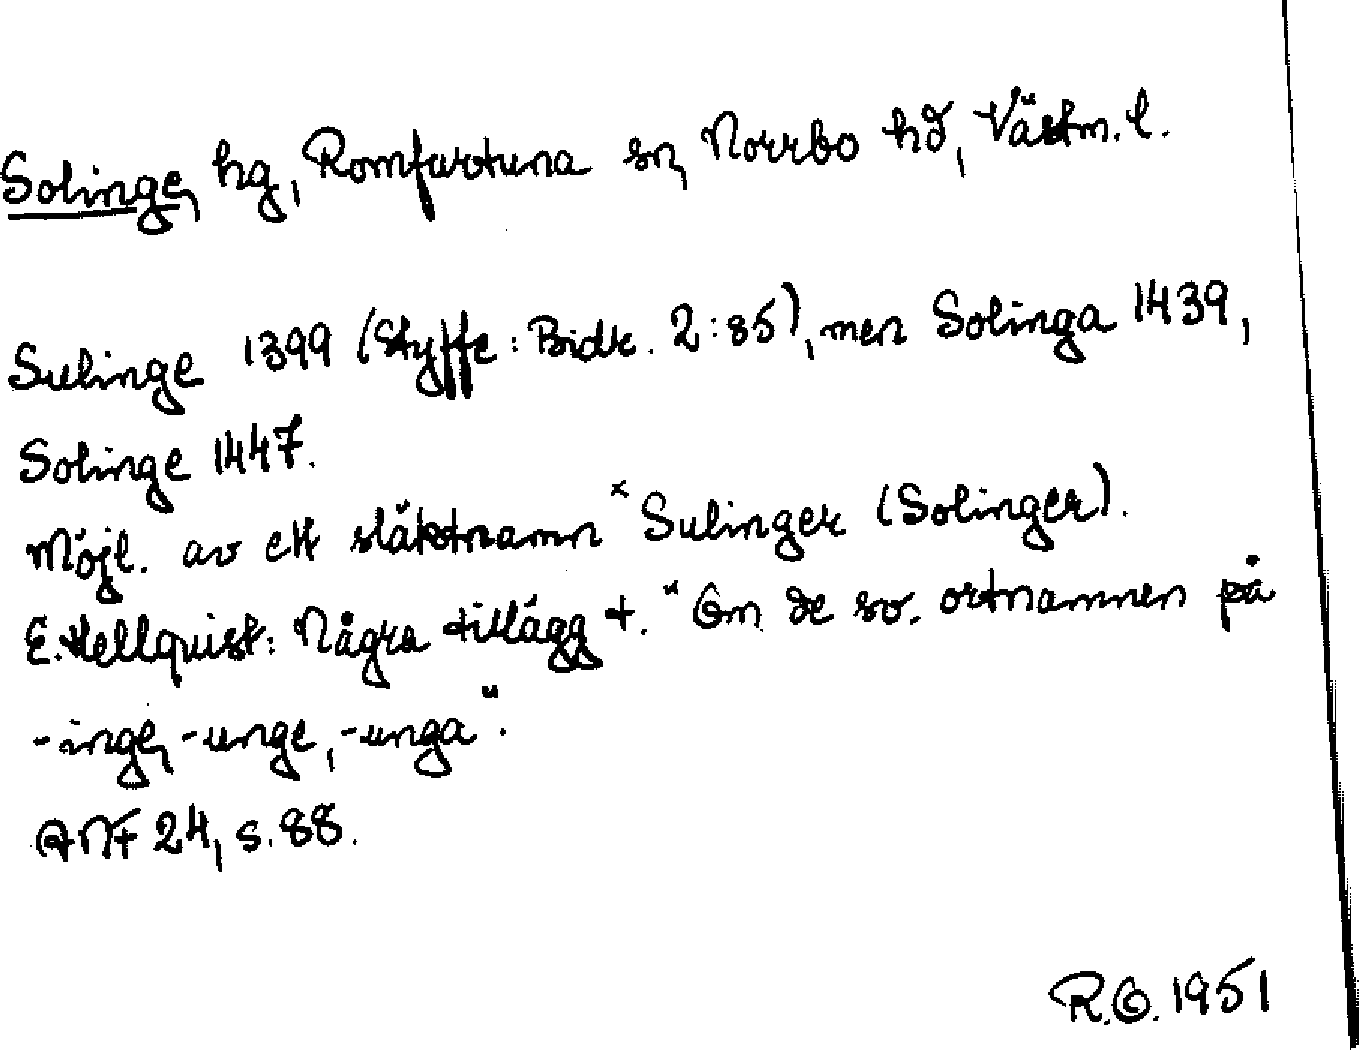 Solinge, hg, Romfartuna sn, Norrbo hd, Västm. l.
Sulinge 1399 (Styffe: Bidr. 2:85), men Solinga 1439,
Solinge 1447.
Möjl. av ett släktnamn ˣSulinger (Solinger).
E. Hellquist: Några tillägg t. "Om de sv. ortnamnen på
-inge, -unge, -unga".
ANF 24, s. 88.
R.O. 1951